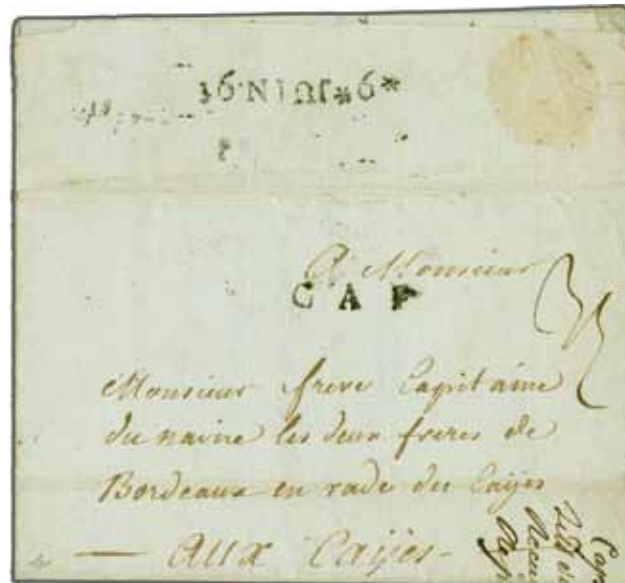 *9*JUIN
A Monsieur
CAP
Monsieur frere Capitaine
du navire les deux freres de
Bordeaux en rade des Cayes
— Aux Cayes —